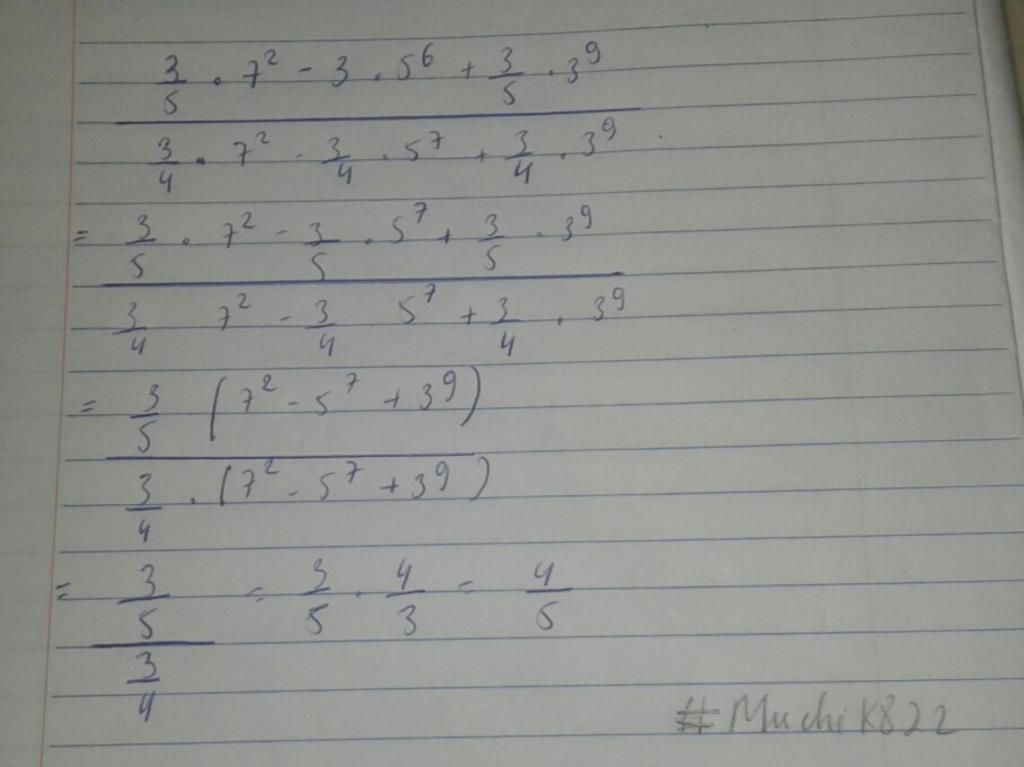 3/5 . 7² - 3 . 5⁶ + 3/5 . 3⁹
3/4 . 7² - 3/4 . 5⁷ + 3/4 . 3⁹
= 3/5 . 7² - 3/5 . 5⁷ + 3/5 . 3⁹
3/4 7² - 3/4 5⁷ + 3/4 . 3⁹
= 3/5 (7² - 5⁷ + 3⁹)
3/4 . (7² - 5⁷ + 3⁹)
= 3/5 / 3/4 = 3/5 . 4/3 = 4/5
#MuchiK822